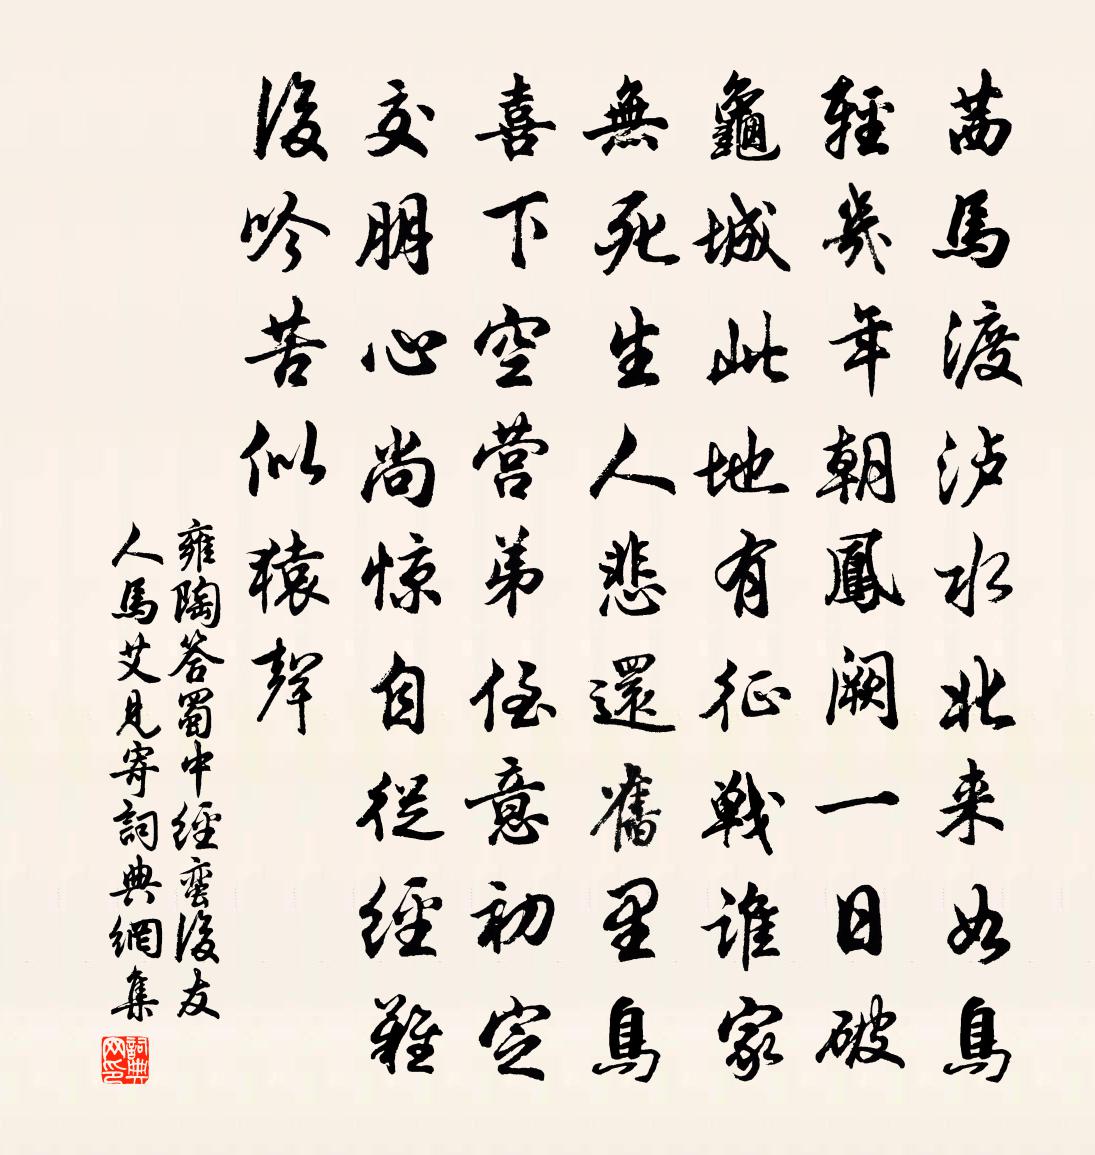 茜馬渡泸水北来如鳥
輕幾年朝鳳闕一日破
龜城此地有征戰誰家
無死生人悲還舊里鳥
喜下空营弟侄意初定
交朋心尚惊自從經難
後吟苦似猿聲
雍陶答蜀中經蠻後友
人馬艾見寄詞典網集
詞典网印